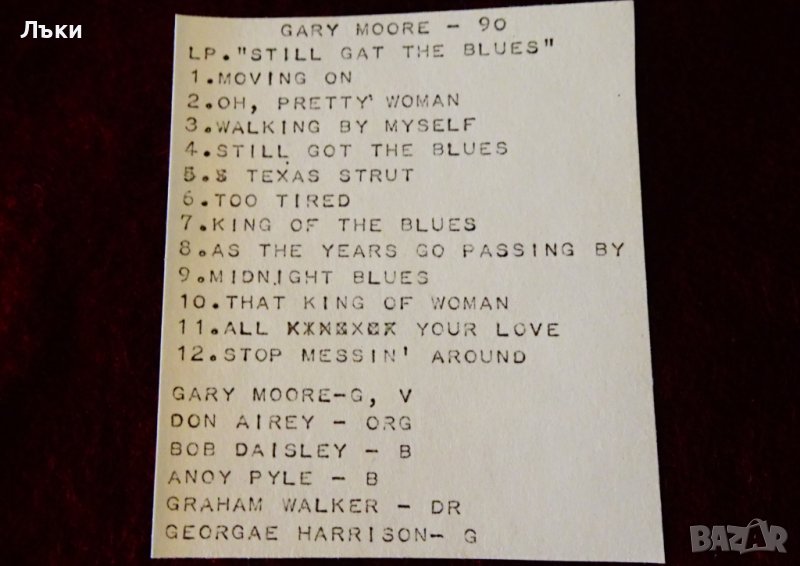 Лъки
GARY MOORE - 90
LP."STILL GAT THE BLUES"
1.MOVING ON
2.OH, PRETTY WOMAN
3.WALKING BY MYSELF
4.STILL GOT THE BLUES
5. TEXAS STRUT
6.TOO TIRED
7.KING OF THE BLUES
8.AS THE YEARS GO PASSING BY
9.MIDNIGHT BLUES
10.THAT KING OF WOMAN
11.ALL YOUR LOVE
12.STOP MESSIN' AROUND
GARY MOORE-G, V
DON AIREY - ORG
BOB DAISLEY - B
ANOY PYLE - B
GRAHAM WALKER - DR
GEORGAE HARRISON- G
BAZAR